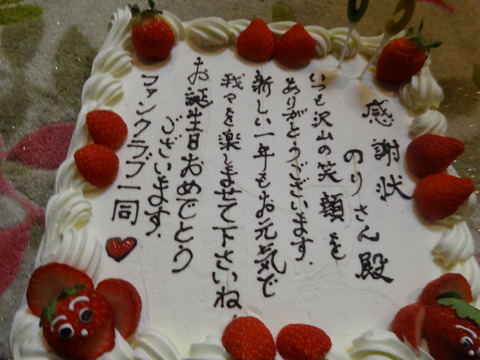 感謝状
のりさん殿
いつも沢山の笑顔を
ありがとうございます。
新しい一年もお元気で
我々を楽しませて下さいね。
お誕生日おめでとう
ございます。
ファンクラブ一同♥